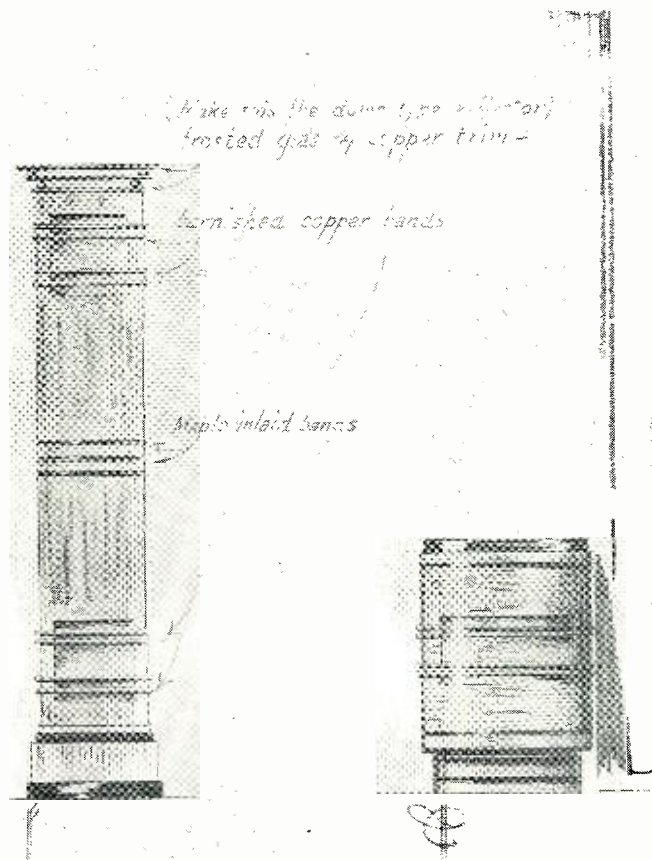 Make this the dome type reflector,
frosted glass & copper trim –
burnished copper bands
Maple inlaid bands